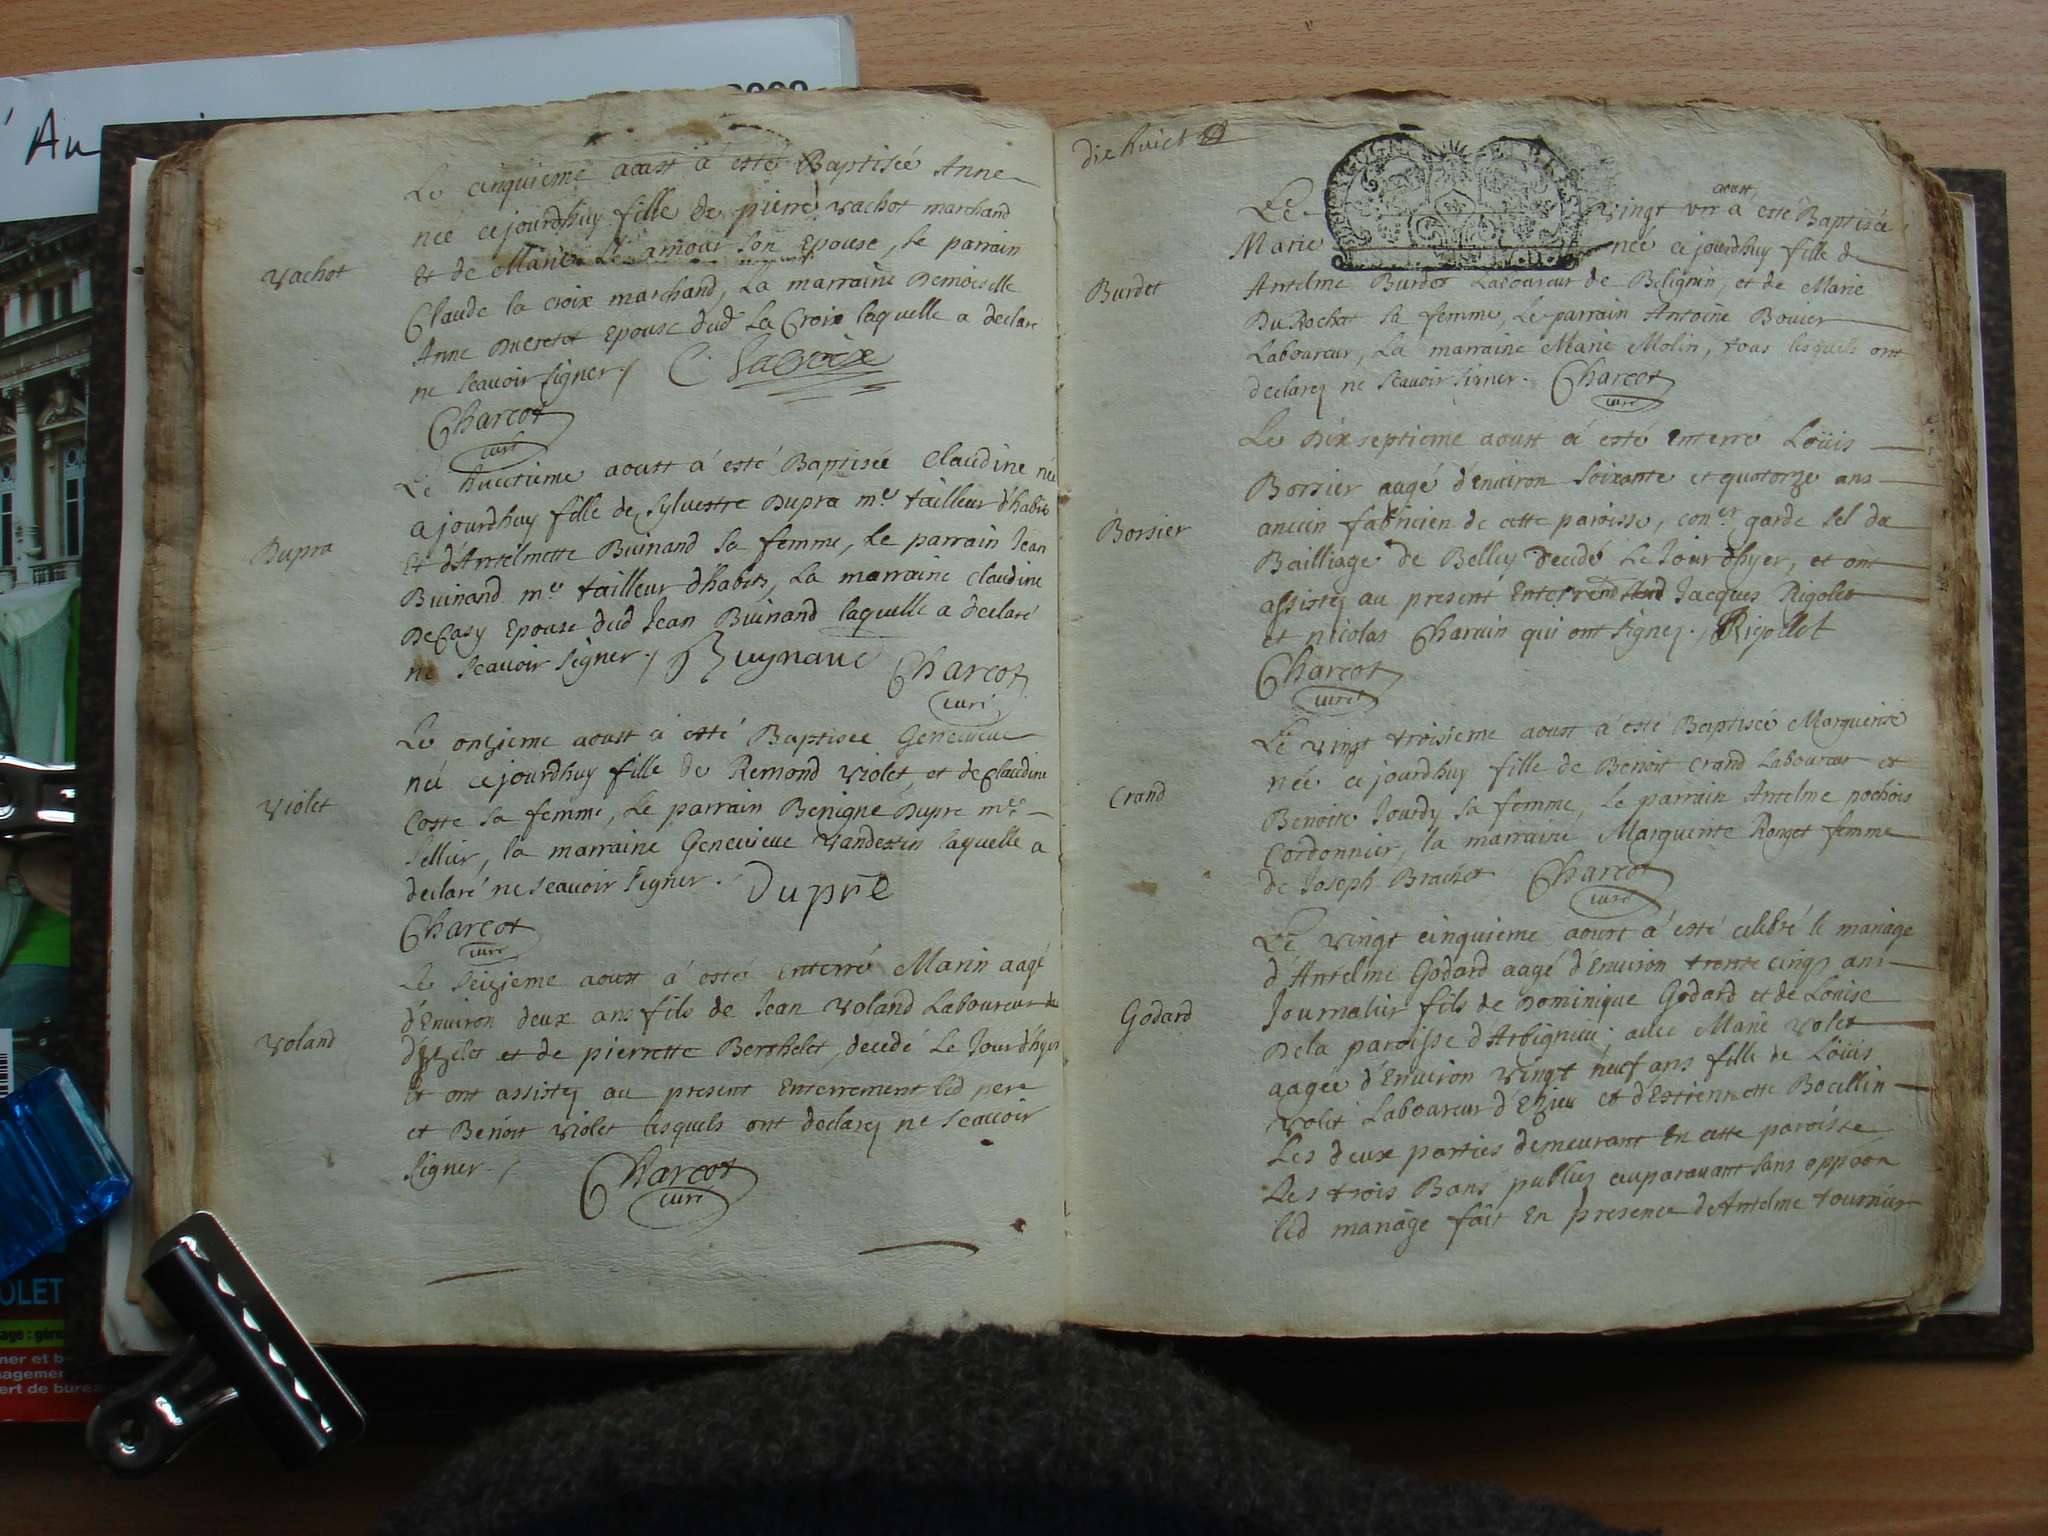 Au
Le cinquieme aoust a esté Baptisée Anne
née cejourdhuy fille de pierre vachot marchand
Vachot
Et de Marie St amour son Epouse, le parrain
Claude la croix marchand, La marraine Demoiselle
Anne Epouse dud La Croix laquelle a declaré
ne scavoir signer / C. Lacroix
Charcot
curé
Le huictieme aoust a esté Baptisée Claudine née
cejourdhuy fille de Sylvestre Dupra me tailleur d'habits
Dupra
Et d'Antelmette Buinand sa femme, Le parrain Jean
Buinand me tailleur dhabits, La marraine Claudine
DeCasy Epouse dud Jean Buinand laquelle a declaré
ne scavoir signer. / Buynand Charcot
curé
Le onzieme aoust a esté Baptisée Genevieve
née cejourdhuy fille de Remond violet, et de Claudine
Violet
Coste sa femme, Le parrain Benigne Dupre me
sellier, la marraine Genevieve Vandestin laquelle a
declaré ne scavoir signer. Dupré
Charcot
curé
Le seizieme aoust a esté enterré Marin aagé
d'Environ deux ans fils de Jean Voland Laboureur
Voland
et de pierrette Berthelet, decedé Le Jour d'hyer
Et ont assistez au present Enterrement led pere
et Benoit violet lesquels ont declarez ne scavoir
signer. / Charcot
curé
die huict
Le vingt un aoust a esté Baptisée
Marie née cejourdhuy fille de
Burdet
Antelme Burdet Laboureur de Belignin, et de Marie
Du Rochat sa femme, Le parrain Antoine Bouier
Laboureur, La marraine Marie Molin, tous lesquels ont
declarez ne scavoir signer. Charcot
curé
Le Dix septieme aoust a esté Enterré Loüis
Borsier aagé d'environ soixante et quatorze ans
Borsier
ancien fabricien de cette paroisse, coner garde sel du
Bailliage de Belley decedé Le Jour d'hyer, et ont
assistez au present Jacques Rigolet
et nicolas Charvin qui ont signez. / Rigollet
Charcot
curé
Le vingt troisieme aoust a esté Baptisée Marguerite
née cejourdhuy fille de Benoit Crand Laboureur et
Crand
Benoite Jourdy sa femme, Le parrain Antelme pochois
Cordonnier, la marraine Marguerite Ronget femme
de Joseph Brachet Charcot
curé
Le vingt cinquieme aoust a esté celebré le mariage
d'Antelme Godard aagé d'Environ trente cinq ans
Godard
Journalier fils de Dominique Godard et de Louise
De la paroisse d'Arbignieu, avec Marie Volet
aagée d'Environ vingt neuf ans fille de Loüis
Volet Laboureur d'Ezieu et d'Estiennette Bocillin
Les deux parties demeurant en cette paroisse
Les trois Bans publiez auparavant sans oppoon
Led mariage fait En presence de Antelme tournier